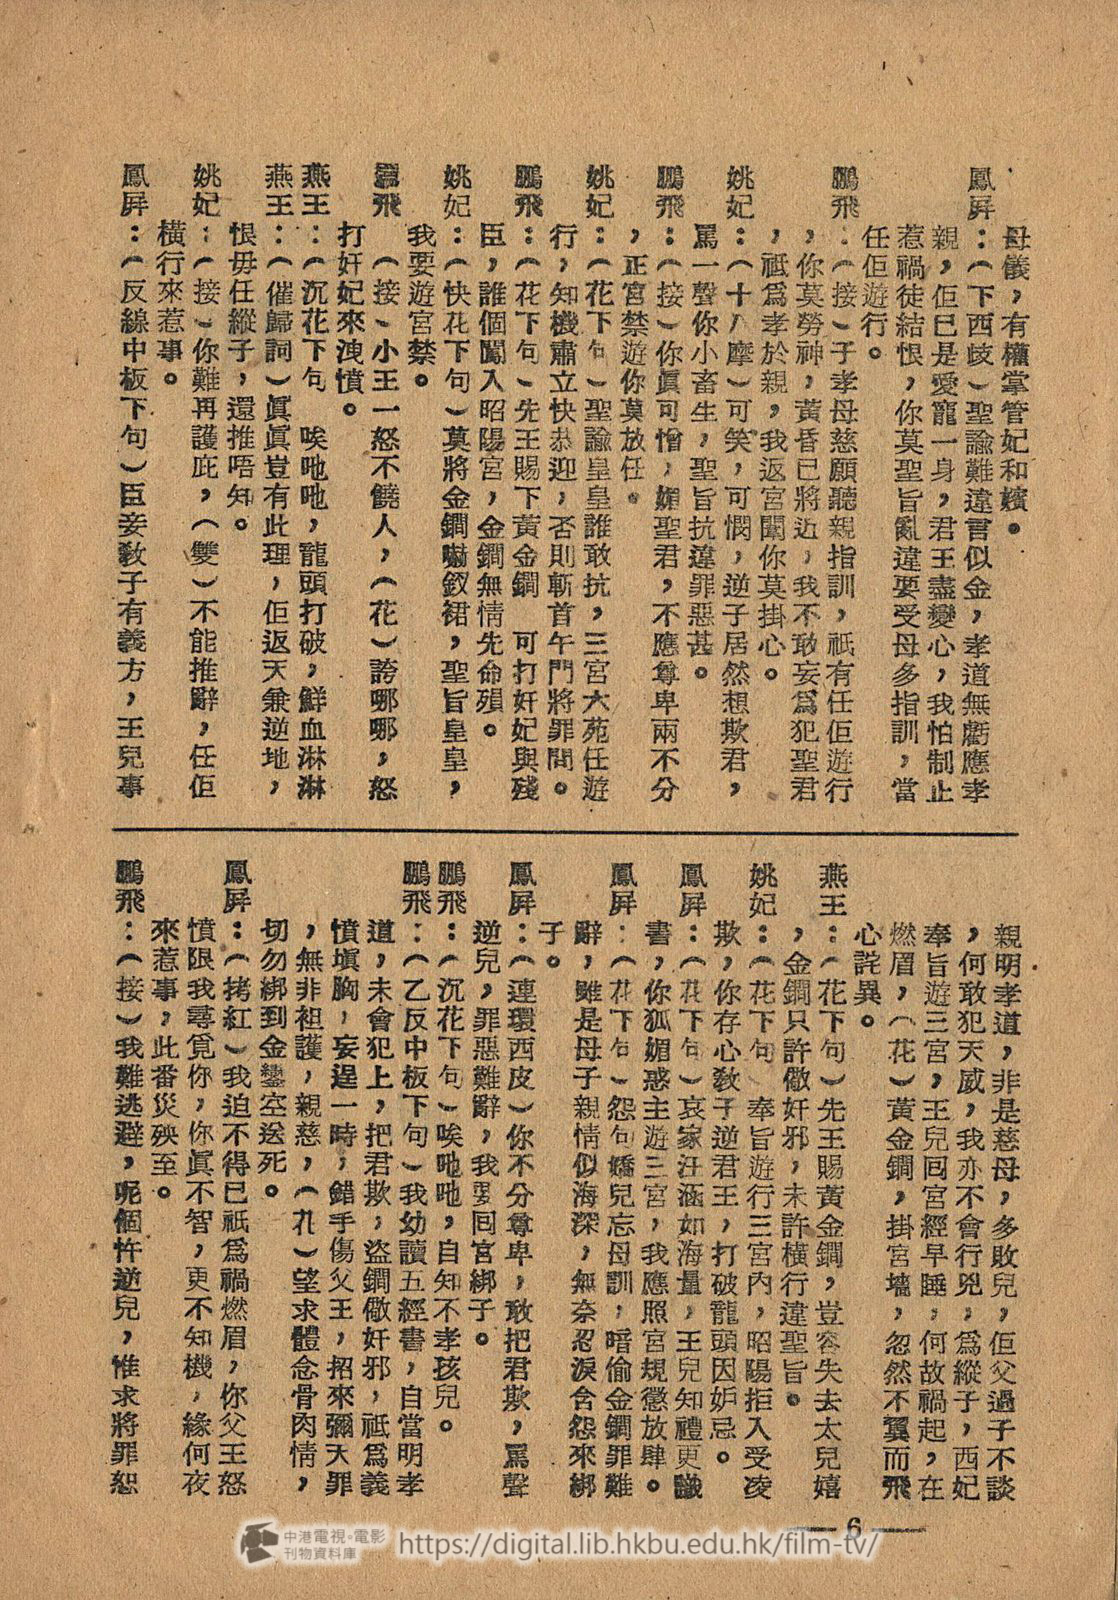 母儀，有權掌管妃和嬪。
鳳屏：（下西岐）聖諭難違言似金，孝道無虧應孝
親，佢已是愛寵一身，君王盡變心，我怕制止
惹禍徒結恨，你莫聖旨亂違要受母多指訓，當
任佢遊行。
鵬飛：（接）子孝母慈願聽親指訓，祇有任佢遊行
，你莫勞神，黃昏已將近，我不敢妄爲犯聖君
，祗爲孝於親，我返宮闈你莫掛心。
姚妃：（十八摩）可笑，可憫，逆子居然想欺君，
罵一聲你小畜生，聖旨抗違罪惡甚。
鵬飛：（接）你眞可憎，媚聖君，不應尊卑兩不分
，正宮禁遊你莫放任。
姚妃：（花下句）聖諭皇皇誰敢抗，三宮六苑任遊
行，知機肅立快恭迎，否則斬首午門將罪問。
鵬飛：（花下句）先王賜下黃金鐧　可打奸妃與殘
臣，誰個闖入昭陽宮，金鐧無情先命殞。
姚妃：（快花下句）莫將金鐧嚇釵裙，聖旨皇皇，
我要遊宮禁。
鵬飛　（接）小王一怒不饒人，（花）誇哪哪，怒
打奸妃來洩憤。
燕王：（沉花下句　唉吔吔，龍頭打破，鮮血淋淋
燕王：（催歸詞）眞眞豈有此理，佢返天兼逆地，
恨毋任縱子，還推唔知。
姚妃：（接）你難再護庇，（雙）不能推辭，任佢
橫行來惹事。
鳳屏：（反線中板下句）臣妾敎子有義方，王兒事
親明孝道，非是慈母，多敗兒，佢父過子不談
，何敢犯天威，我亦不會行兇，爲縱子，西妃
奉旨遊三宮，王兒囘宮經早睡，何故禍起，在
燃眉，（花）黃金鐧，掛宮墻，忽然不翼而飛
心詫異。
燕王：（花下句）先王賜黃金鐧，豈容失去太兒嬉
，金鐧只許儆奸邪，未許橫行違聖旨。
姚妃：（花下句　奉旨遊行三宮內，昭陽拒入受凌
欺，你存心敎子逆君王，打破龍頭因妒忌。
鳳屏：（花下句）哀家汪涵如海量，王兒知禮更識
書，你狐媚惑主遊三宮，我應照宮規懲放肆。
鳳屏：（花下句）怨句嬌兒忘母訓，暗偷金鐧罪難
辭，雖是母子親情似海深，無奈忍淚含怨來綁
子。
鳳屏：（連環西皮）你不分尊卑，敢把君欺，罵聲
逆兒，罪惡難辭，我要囘宮綁子。
鵬飛：（沉花下句）唉吔吔，自知不孝孩兒。
鵬飛：（乙反中板下句）我幼讀五經書，自當明孝
道，未會犯上，把君欺，盜鐧儆奸邪，祗爲義
憤塡胸，妄逞一時，錯手傷父王，招來彌天罪
，無非袒護，親慈，（花）望求體念骨肉情，
切勿綁到金鑾空送死。
鳳屏：（拷紅）我迫不得已祇爲禍燃眉，你父王怒
憤限我尋覓你，你眞不智，更不知機，緣何夜
來惹事，此番災殃至。
鵬飛：（接）我難逃避，呢個忤逆兒，惟求將罪恕
— 6 —
中港電視・電影
刊物資料庫
https://digital.lib.hkbu.edu.hk/film-tv/